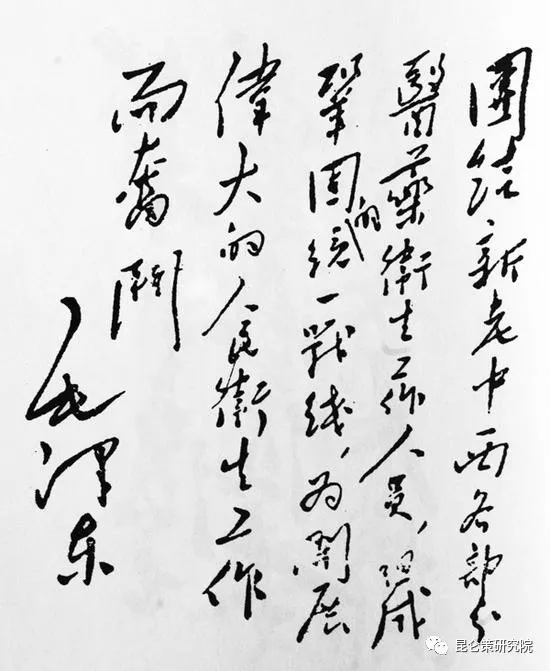 團結新老中西各部分
醫藥衛生工作人員，組成
鞏固的統一戰线，为開展
偉大的人民衛生工作
而奮鬥
毛澤东
昆仑策研究院